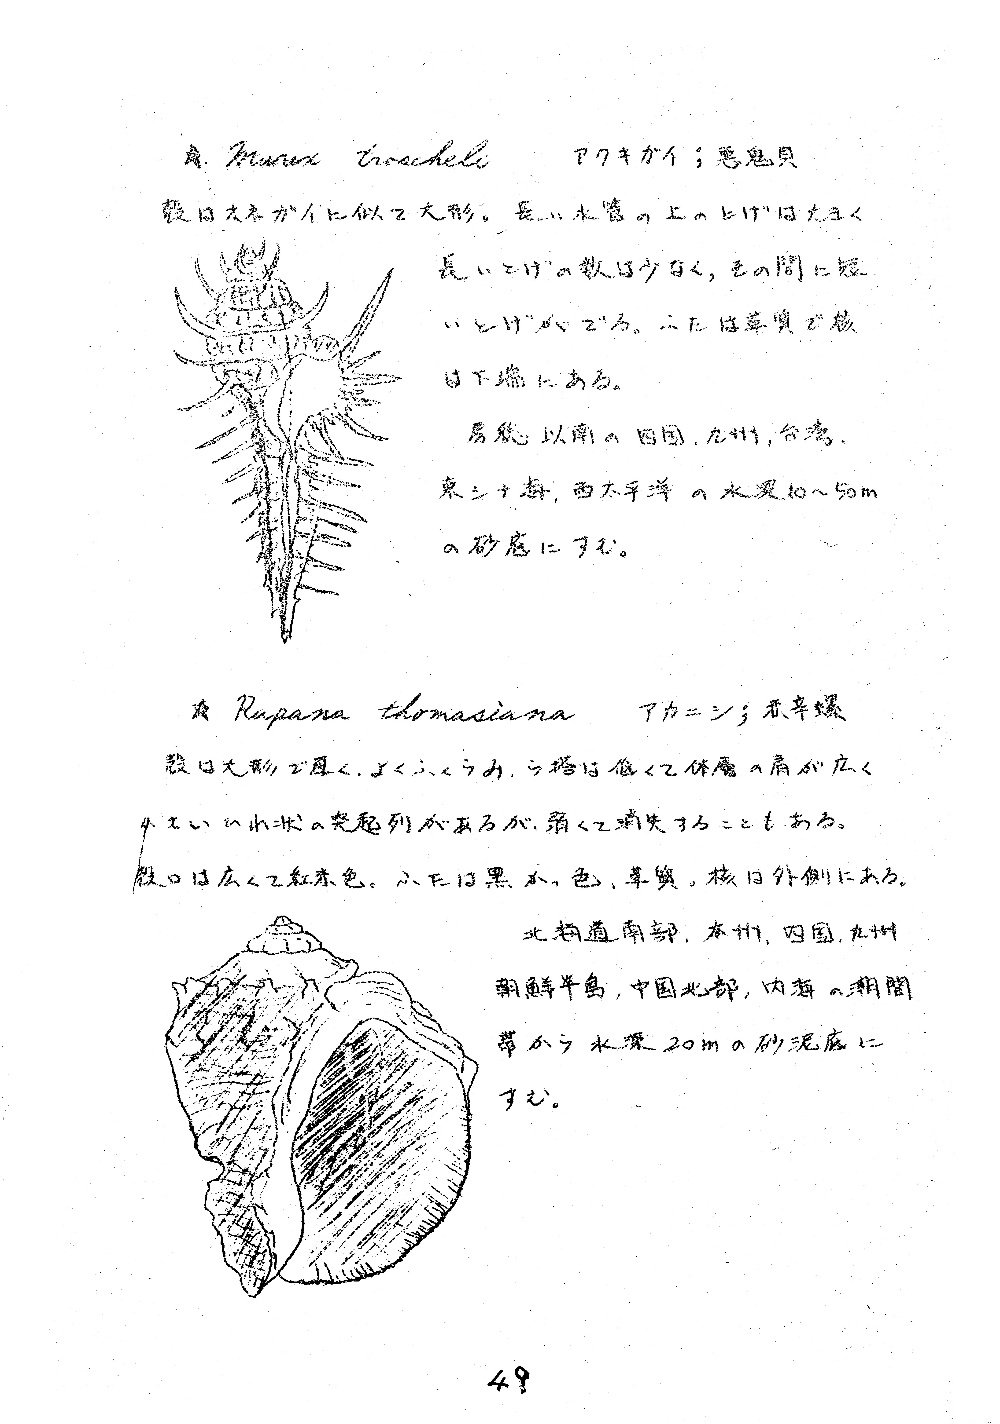 ☆. Murex troscheli アクキガイ；悪鬼貝
殻はホネガイに似て大形。長い水管の上のとげは大きく
長いとげの数は少なく，その間に短
いとげがでる。ふたは革質で核
は下端にある。
房総以南の四国，九州，台湾，
東シナ海，西太平洋の水深10〜50m
の砂底にすむ。
☆ Rapana thomasiana アカニシ；赤辛螺
殻は大形で厚く，よくふくらみ，ら塔は低くて体層の肩が広く
小さいひれ状の突起列があるが，弱くて消失することもある。
殻口は広くて紅赤色。ふたは黒かっ色，革質。核は外側にある。
北海道南部，本州，四国，九州
朝鮮半島，中国北部，内海の潮間
帯から水深20mの砂泥底に
すむ。
49